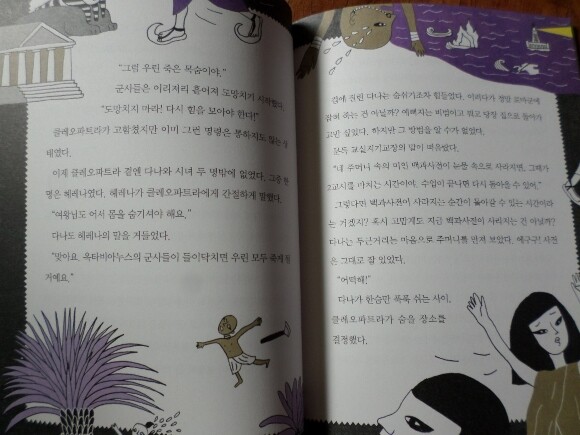 "그럼 우린 죽은 목숨이야."
군사들은 이리저리 흩어져 도망치기 시작했다.
"도망치지 마라! 다시 힘을 모아야 한다!"
클레오파트라가 고함쳤지만 이미 그런 명령은 통하지도 않는 상
태였다.
이제 클레오파트라 곁엔 다나와 시녀 두 명밖에 없었다. 그중 한
명은 헤레나였다. 헤레나가 클레오파트라에게 간절하게 말했다.
"여왕님도 어서 몸을 숨기셔야 해요."
다나도 헤레나의 말을 거들었다.
"맞아요. 옥타비아누스의 군사들이 들이닥치면 우린 모두 죽게 될
거예요."
겁에 질린 다나는 숨쉬기조차 힘들었다. 이러다가 정말 로마군에
잡혀 죽는 건 아닐까? 예뻐지는 비법이고 뭐고 당장 집으로 돌아가
고만 싶었다. 하지만 그 방법을 알 수가 없었다.
문득 교실지기 교장의 말이 떠올랐다.
"네 주머니 속의 미인 백과사전이 눈물 속으로 사라지면, 그때가
2교시를 마치는 시간이야. 수업이 끝나면 다시 돌아올 수 있어."
그렇다면 백과사전이 사라지는 순간이 돌아갈 수 있는 시간이라
는 거겠지? 혹시 고맙게도 지금 백과사전이 사라지는 건 아닐까?
다나는 두근거리는 마음으로 주머니를 만져 보았다. 에구구! 사전
은 그대로 잘 있었다.
"어떡해!"
다나가 한숨만 푹푹 쉬는 사이,
클레오파트라가 숨을 장소를
결정했다.